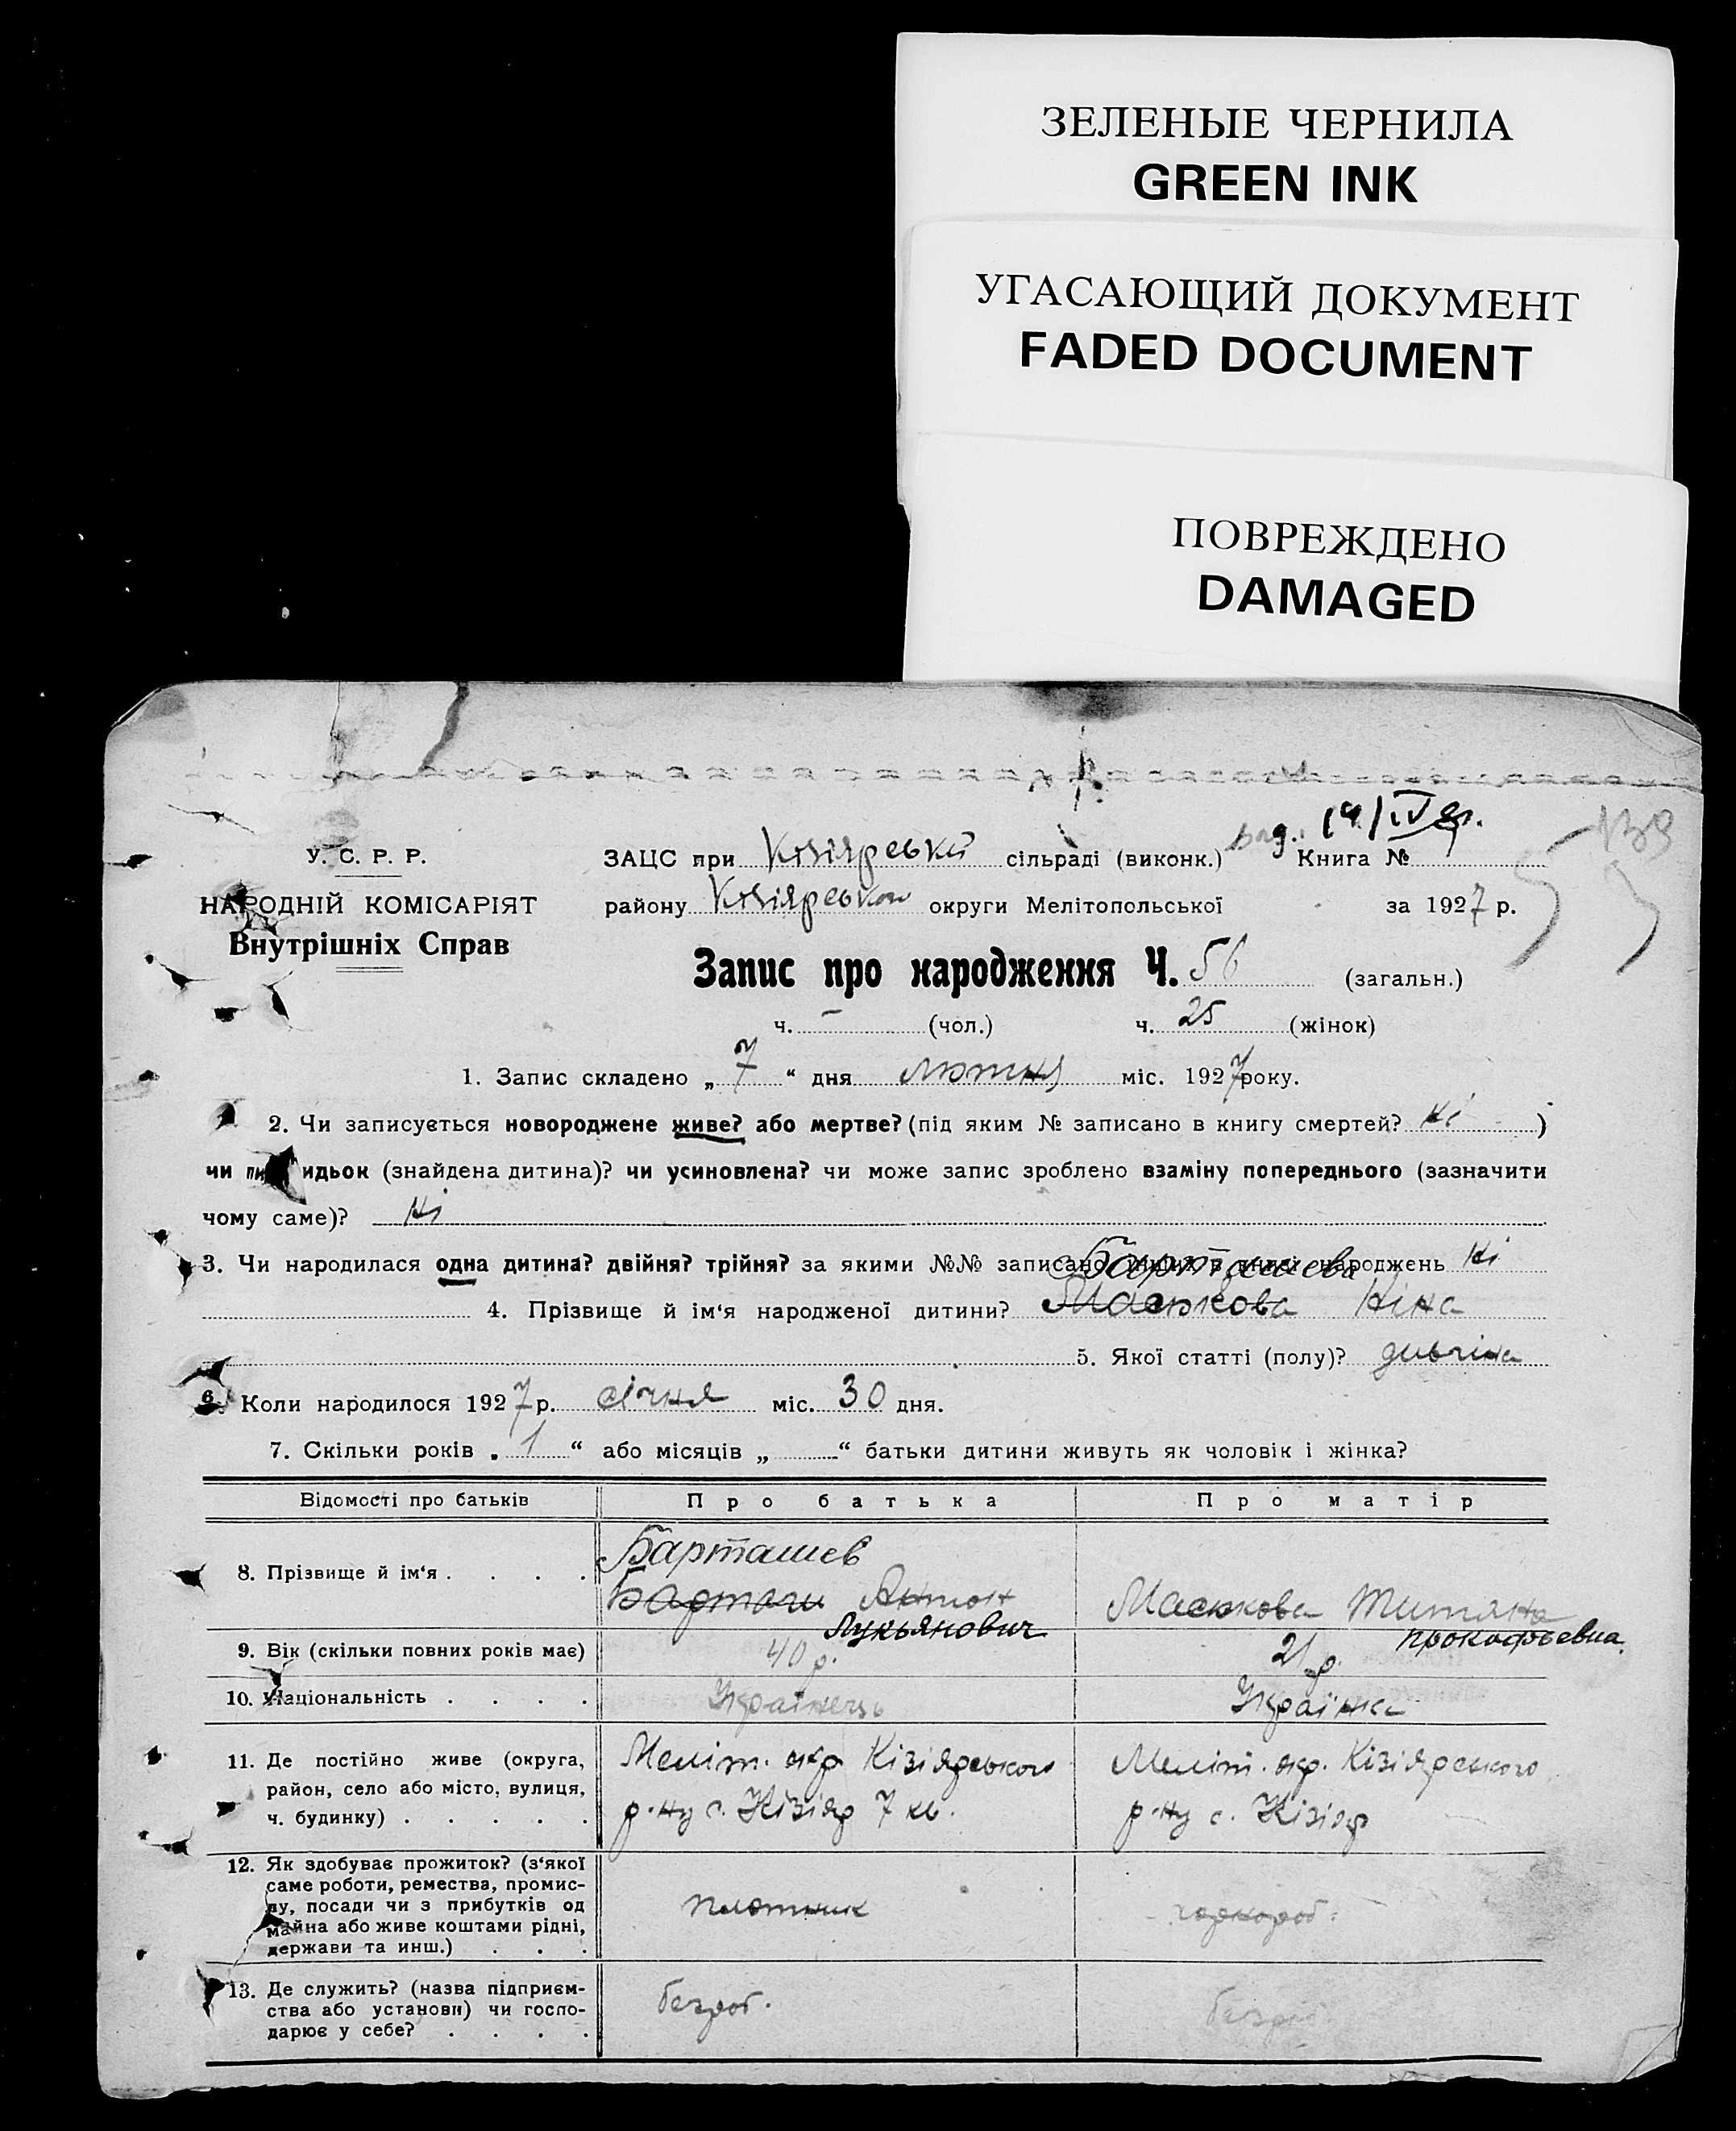 ЗЕЛЕНЫЕ ЧЕРНИЛА
GREEN INK
УГАСАЮЩИЙ ДОКУМЕНТ
FADED DOCUMENT
ПОВРЕЖДЕНО
DAMAGED
139
У. С. Р. Р.
НАРОДНІЙ КОМІСАРІЯТ
Внутрішніх Справ
ЗАЦС при Кізіярській сільраді (виконк.) Книга №
району Кізіярською округи Мелітопольської за 1927 р.
Запис про народження Ч. 56 (загальн.)
ч. – (чол.) ч. 25 (жінок)
1. Запис складено „ 7 “ дня лютня міс. 1927 року.
2. Чи записується новороджене живе? або мертве? (під яким № записано в книгу смертей? Ні )
чи пи идьок (знайдена дитина)? чи усиновлена? чи може запис зроблено взаміну попереднього (зазначити
чому саме)? Ні
3. Чи народилася одна дитина? двійня? трійня? за якими №№ записано інших в книзі народжень Ні
Барташева
4. Прізвище й ім‘я народженої дитини? Маськова Ніна
5. Якої статті (полу)? дивчіна
6. Коли народилося 1927 р. січня міс. 30 дня.
7. Скільки років „ 1 “ або місяців „ “ батьки дитини живуть як чоловік і жінка?
Відомості про батьків Про батька Про матір
Барташев
8. Прізвище й ім‘я . . . . Антон Маськова Титяна
Лукьянович Прокофьевна
9. Вік (скільки повних років має) 40 р. 21 р.
10. Національність . . . . Українець Українка
11. Де постійно живе (округа, район, село або місто, вулиця, ч. будинку) . . . . .
Меліт. окр Кізіярського
р-ну с. Кізіяр 7 кв.
Меліт. окр. Кізіярського
р-ну с. Кізіяр
12. Як здобуває прожиток? (з‘якої
саме роботи, ремества, промис-
лу, посади чи з прибутків од
майна або живе коштами рідні,
держави та инш.) . . .
плотник
чорнороб.
13. Де служить? (назва підприєм-
ства або установи) чи госпо-
дарює у себе? . . . .
безроб.
безроб.